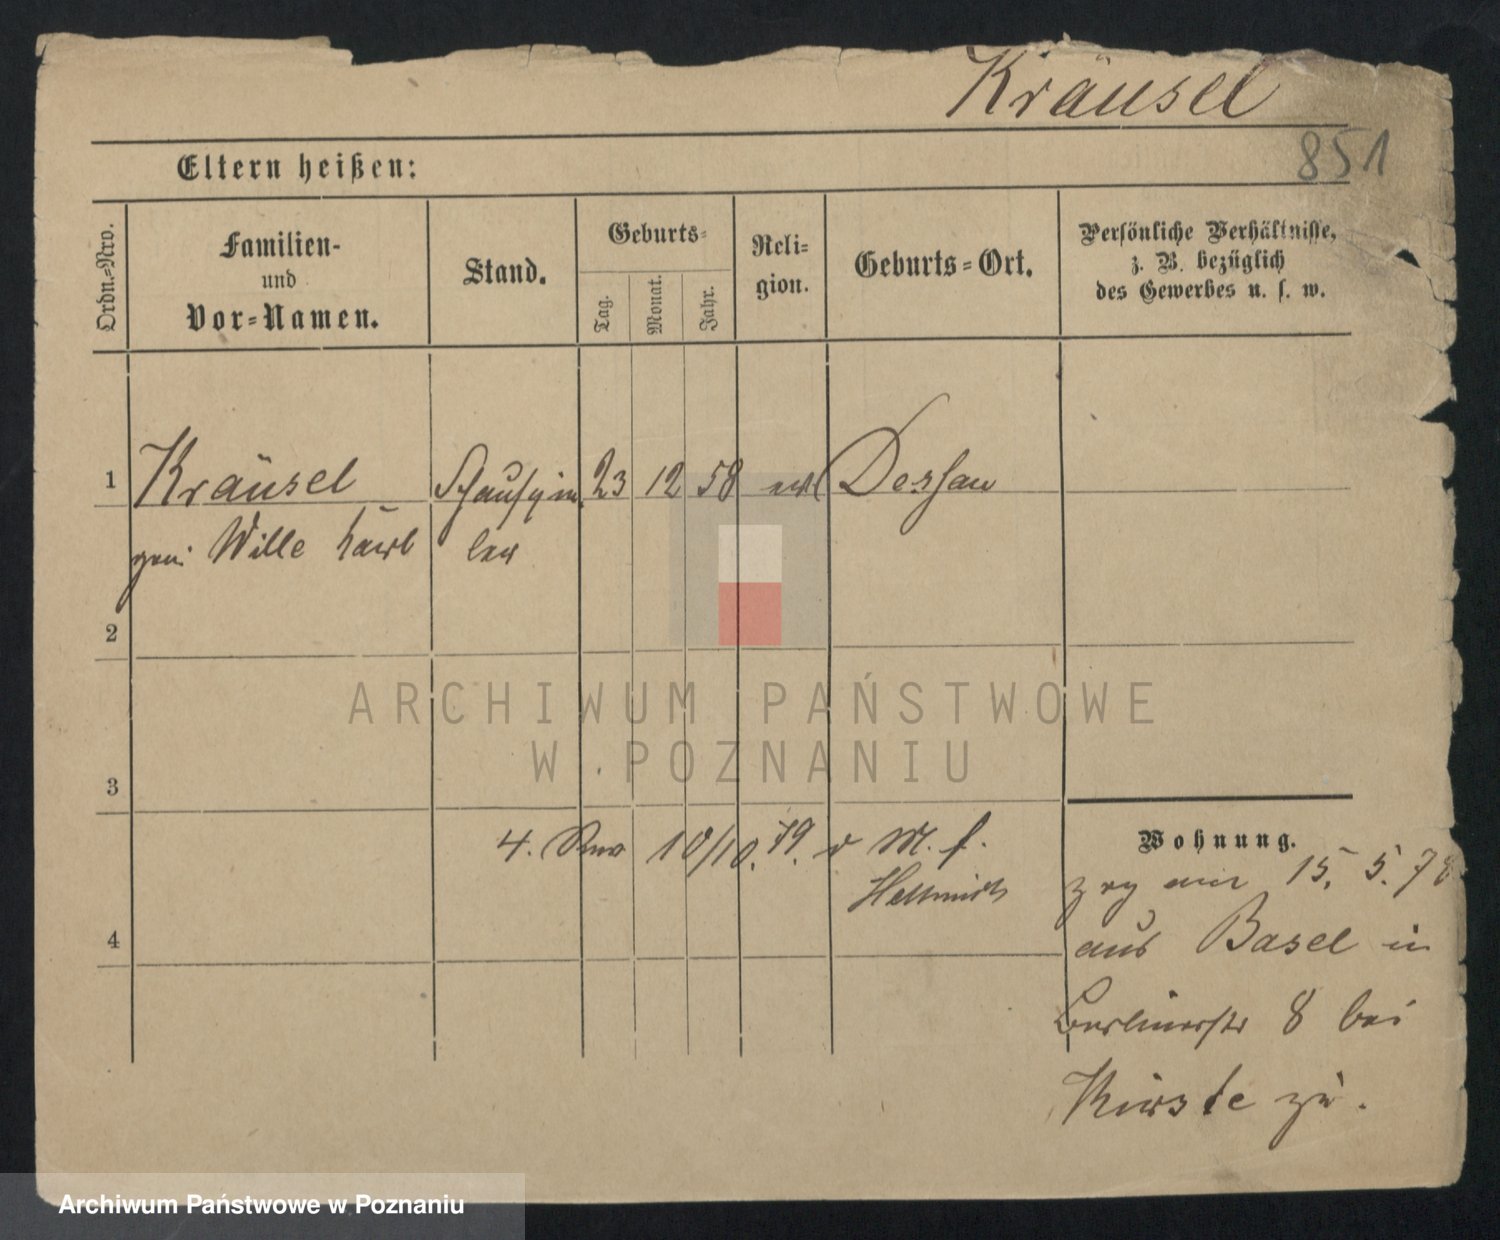 Kräusel
851
Eltern heißen:
Ordn.-Nro.
Familien-
und
Vor-Namen.
Stand.
Geburts-
Tag.
Monat.
Jahr.
Reli-
gion.
Geburts-Ort.
Persönliche Verhältnisse,
z. B. bezüglich
des Gewerbes u. s. w.
1
Kräusel
Schauspie
23
12
58
Dessau
gen. Wille
ler
2
3
4. 10/10. 79. v M. f.
Wohnung.
zog am 15. 5. 78
aus Basel in
4
Berlinerstr 8 bei
Kirste zu.
ARCHIWUM PAŃSTWOWE
W POZNANIU
Archiwum Państwowe w Poznaniu